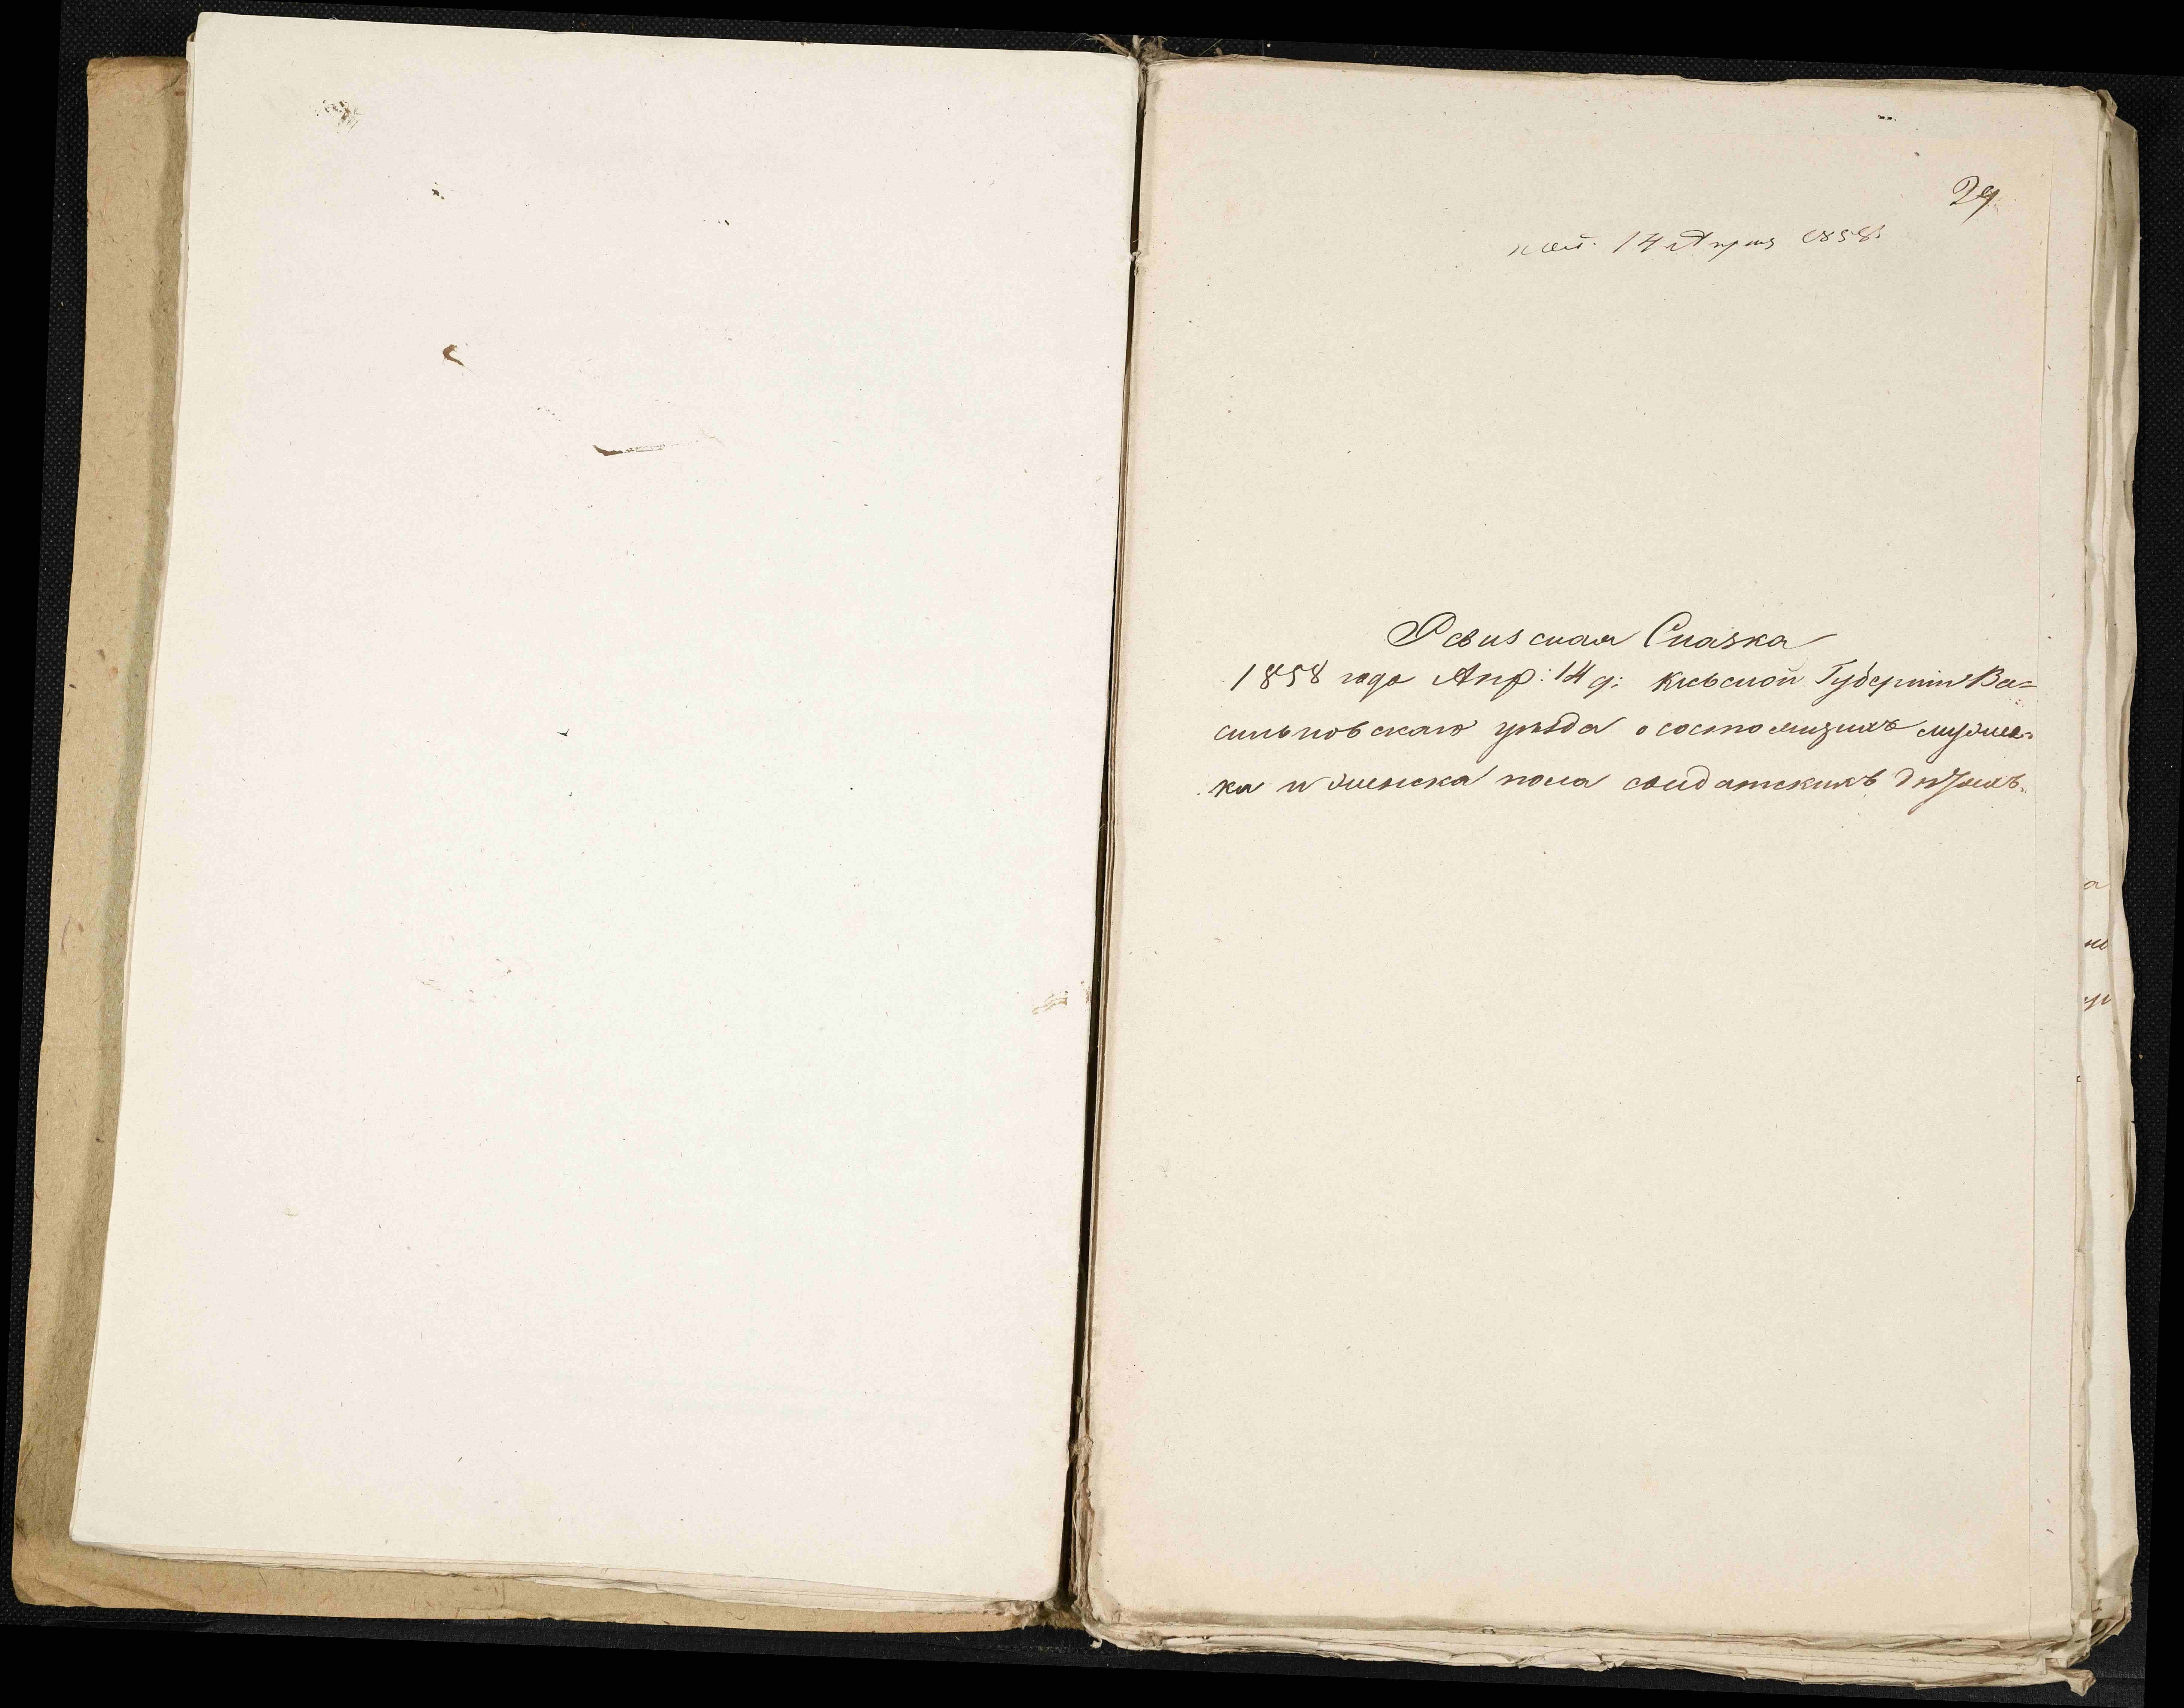 29
14 Апреля 1858
Ревизская Сказка
1858 года Апр: 14 д: Кіевской Губерніи Ва=
сильковскаго уѣзда о состоящихъ мужеска=
ка и женска пола солдатскихъ дѣтяхъ.